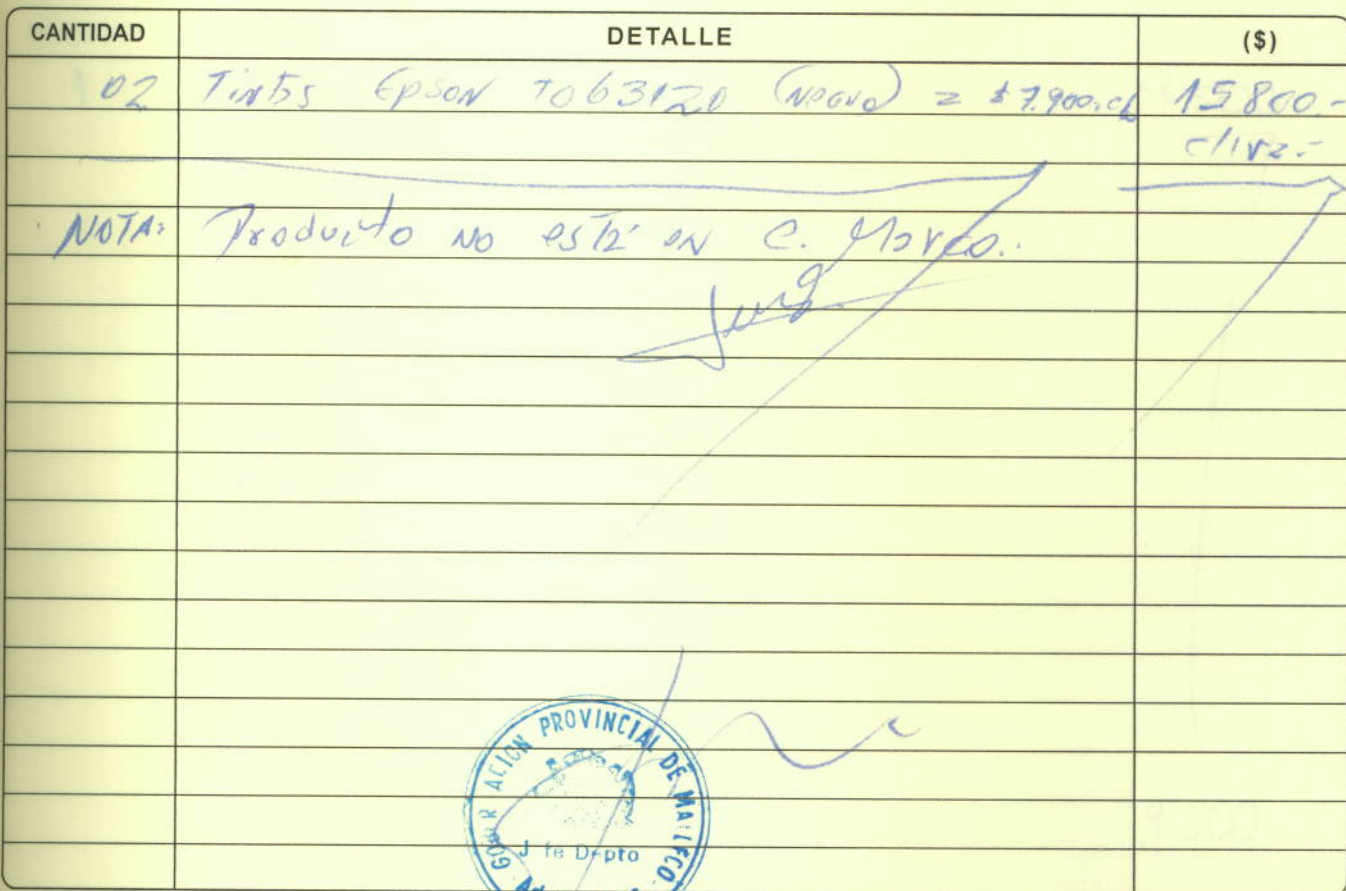 CANTIDAD DETALLE ($)
02 Tintas Epson T063120 (negro) = $7.900.c/u 15800.-
c/iva.-
NOTA: Producto no está en C. Marco.
GOBERNACION PROVINCIAL DE MALLECO
Jefe Depto